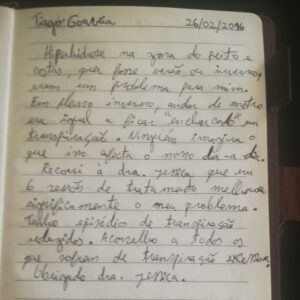 Tiago Gouvêa 26/02/2016
Hiperhidrose na zona do peito e
costas, quer fosse verão ou inverno,
eram um problema para mim.
Em pleno inverno, andar de metro
era igual a ficar "encharcado" em
transpiração. Ninguém imagina o
que isso afecta o nosso dia-a-dia.
Recorri à dra. Jessica que em
6 sessão de tratamento melhorou
significamente o meu problema.
Tenho episódios de transpiração
reduzidos. Aconselho a todos os
que sofram de transpiração excessiva.
Obrigado dra. Jessica.